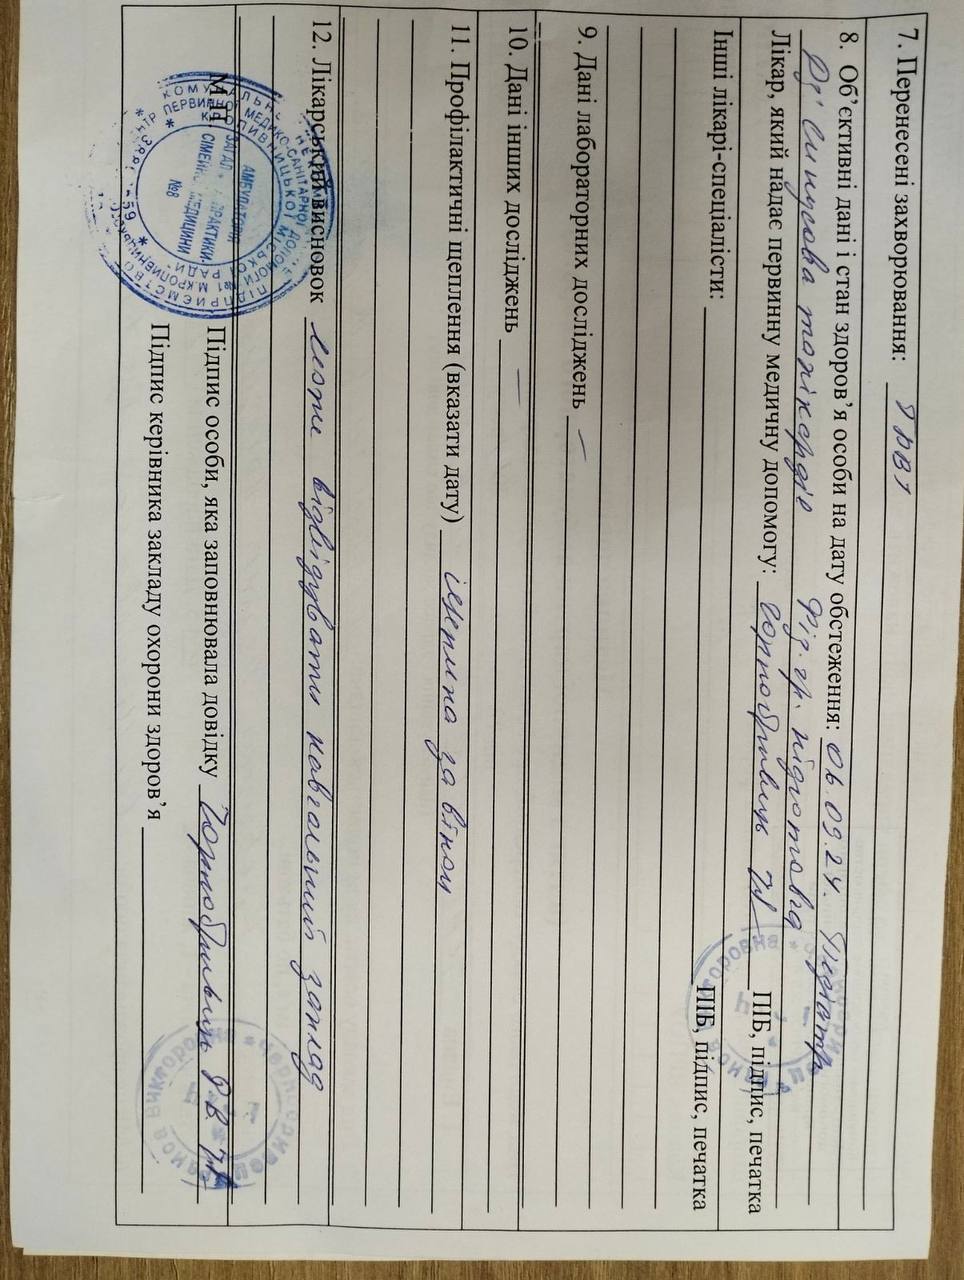 7. Перенесені захворювання: ГРВІ
8. Об’єктивні дані і стан здоров’я особи на дату обстеження: 06.09.24. Педіатр
Ds: синусова тахікардія Фіз. гр. підготовча
Лікар, який надає первинну медичну допомогу: Чорнобривець
ПІБ, підпис, печатка
Інші лікарі-спеціалісти:
ПІБ, підпис, печатка
9. Дані лабораторних досліджень –
10. Дані інших досліджень –
11. Профілактичні щеплення (вказати дату) щеплена за віком
12. Лікарський висновок може відвідувати навчальний заклад
М.П.
Підпис особи, яка заповнювала довідку Чорнобривець
Підпис керівника закладу охорони здоров’я
КОМУНАЛЬНЕ ПІДПРИЄМСТВО
ЦЕНТР ПЕРВИННОЇ МЕДИКО-САНІТАРНОЇ ДОПОМОГИ №1 М.КРОПИВНИЦЬКОГО
АМБУЛАТОРІЯ
ПРАКТИКИ-
СІМЕЙНОЇ МЕДИЦИНИ
№8